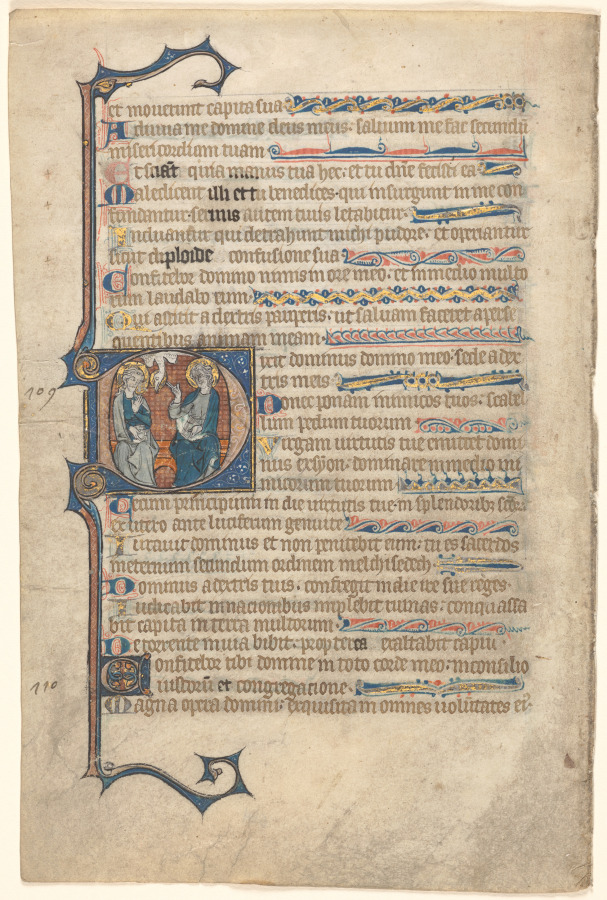 et moverunt capita sua
Adiuva me domine deus meus: salvum me fac secundum
misericordiam tuam
Et sciant quia manus tua hec: et tu dne fecisti ea
Maledicent illi et tu benedices: qui insurgunt in me con
fundantur: servus autem tuus letabitur
Induantur qui detrahunt michi pudore: et operiantur
sicut diploide confusione sua
Confitebor domino nimis in ore meo: et in medio multo
rum laudabo eum
Qui astitit a dextris pauperis: ut salvam faceret a perse
quentibus animam meam
109
Dixit dominus domino meo: sede a dex
tris meis
Donec ponam inimicos tuos: scabel
lum pedum tuorum
Virgam virtutis tue emittet domi
nus ex syon: dominare in medio ini
micorum tuorum
Tecum principium in die virtutis tue in splendoribz scoru
ex utero ante luciferum genui te
Iuravit dominus et non penitebit eum: tu es sacerdos
in eternum secundum ordinem melchisedech
Dominus a dextris tuis: confregit in die ire sue reges
Iudicabit in nacionibus implebit ruinas: conquassa
bit capita in terra multorum
De torrente in via bibit: propterea exaltabit caput
Confitebor tibi domine in toto corde meo: in consilio
110
iustoru et congregacione
Magna opera domini: exquisita in omnes voluntates ei